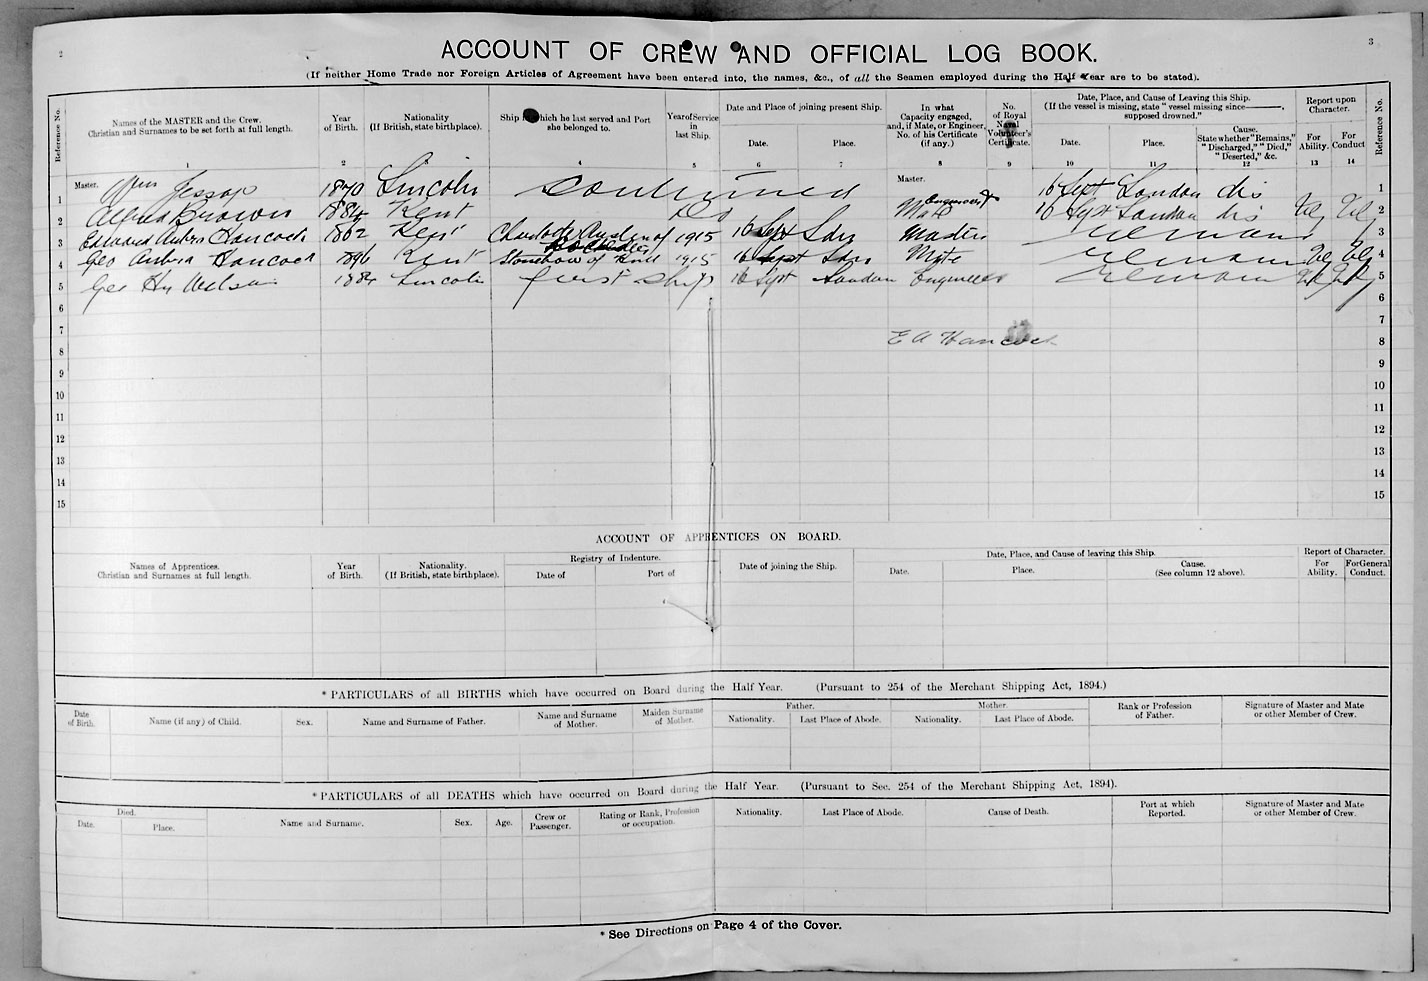 2
3
ACCOUNT OF CREW AND OFFICIAL LOG BOOK.
(If neither Home Trade nor Foreign Articles of Agreement have been entered into, the names, &c., of all the Seamen employed during the Half Year are to be stated).
Reference No. Names of the MASTER and the Crew. Christian and Surnames to be set forth at full length. Year of Birth. Nationality (If British, state birthplace). Ship in which he last served and Port she belonged to. Year of Service in last Ship. Date and Place of joining present Ship. Date. Place. In what Capacity engaged, and, if Mate, or Engineer, No. of his Certificate (if any). No. of Royal Naval Volunteer's Certificate. Date, Place, and Cause of Leaving this Ship. (If the vessel is missing, state "vessel missing since———, supposed drowned." Date. Place. Cause. State whether "Remains," "Discharged," "Died," "Deserted," &c. Report upon Character. For Ability. For Conduct Reference No.
1 2 3 4 5 6 7 8 9 10 11 12 13 14
Master. Master.
1 Wm Jessop 1870 Lincoln Continued 16 Sept London dis 1
2 Alfred Brown 1884 Kent Do Mate Engineer 16 Sept London dis VG VG 2
3 Edward Hancock 1862 Kent 1915 16 Sept Ldn Master Remains 3
4 Geo Hancock 1896 Kent of 1915 16 Sept Ldn Mate Remains VG VG 4
5 Geo Hy Watson 1884 Lincoln first Ship 16 Sept London Engineer Remains VG VG 5
6 6
7 7
8 E A Hancock 8
9 9
10 10
11 11
12 12
13 13
14 14
15 15
ACCOUNT OF APPRENTICES ON BOARD.
Names of Apprentices. Christian and Surnames at full length. Year of Birth. Nationality. (If British, state birthplace). Registry of Indenture. Date of Port of Date of joining the Ship. Date, Place, and Cause of leaving this Ship. Date. Place. Cause. (See column 12 above). Report of Character. For Ability. For General Conduct.
* PARTICULARS of all BIRTHS which have occurred on Board during the Half Year. (Pursuant to 254 of the Merchant Shipping Act, 1894.)
Date of Birth. Name (if any) of Child. Sex. Name and Surname of Father. Name and Surname of Mother. Maiden Surname of Mother. Father. Nationality. Last Place of Abode. Mother. Nationality. Last Place of Abode. Rank or Profession of Father. Signature of Master and Mate or other Member of Crew.
* PARTICULARS of all DEATHS which have occurred on Board during the Half Year. (Pursuant to Sec. 254 of the Merchant Shipping Act, 1894).
Died. Date. Place. Name and Surname. Sex. Age. Crew or Passenger. Rating or Rank, Profession or occupation. Nationality. Last Place of Abode. Cause of Death. Port at which Reported. Signature of Master and Mate or other Member of Crew.
* See Directions on Page 4 of the Cover.